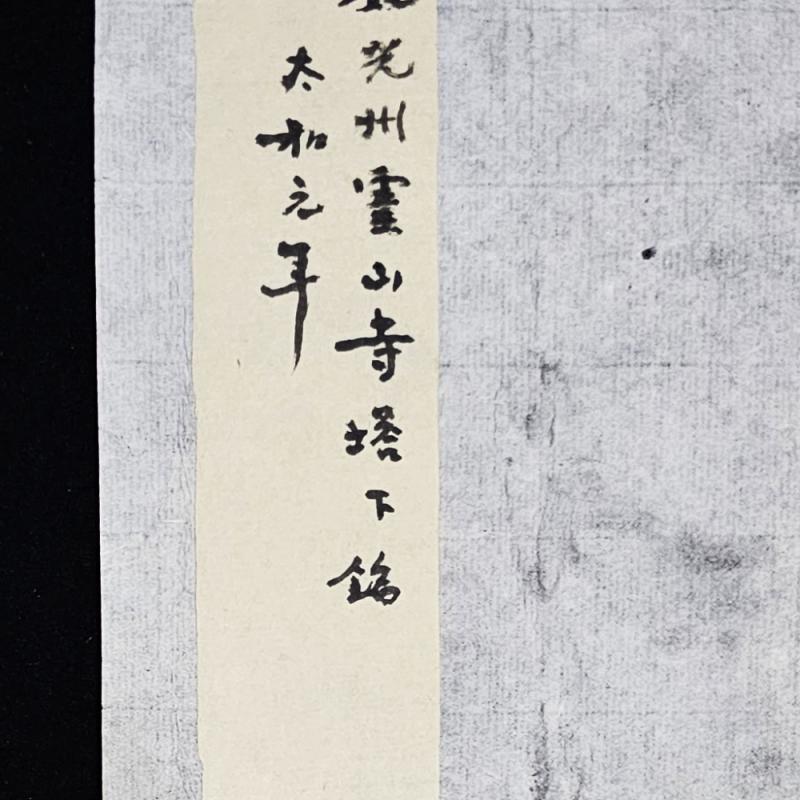 光州靈山寺塔下銘
太和元年